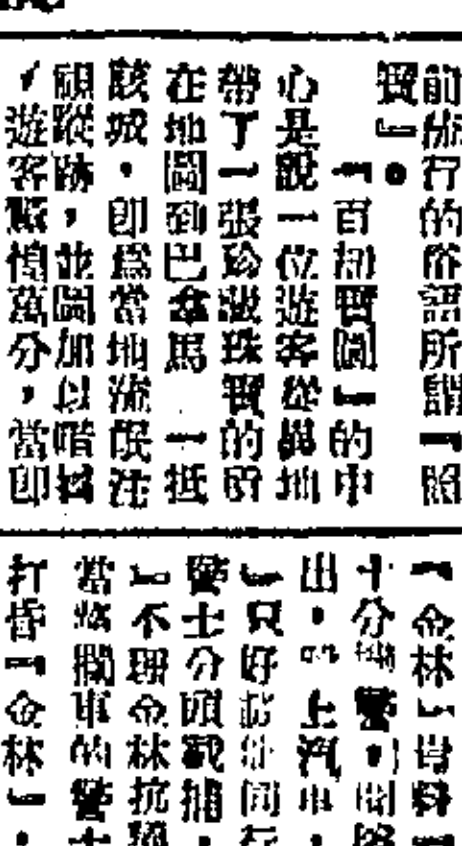 前流行的俗語所謂『照
寶』。
『百初寶圖』的中
心是說一位遊客從異地
帶了一張珍藏珠寶的
在地圖到巴拿馬 一抵
該城,即為當地流氓注
視蹤跡,並圖加以暗
,遊客驚惶萬分,當即
『金林』料『
十分警,
出,上汽車,
』只好同行
警士分頭截捕,
』不理金林抗
當將攔車的警士
打昏『金林』,